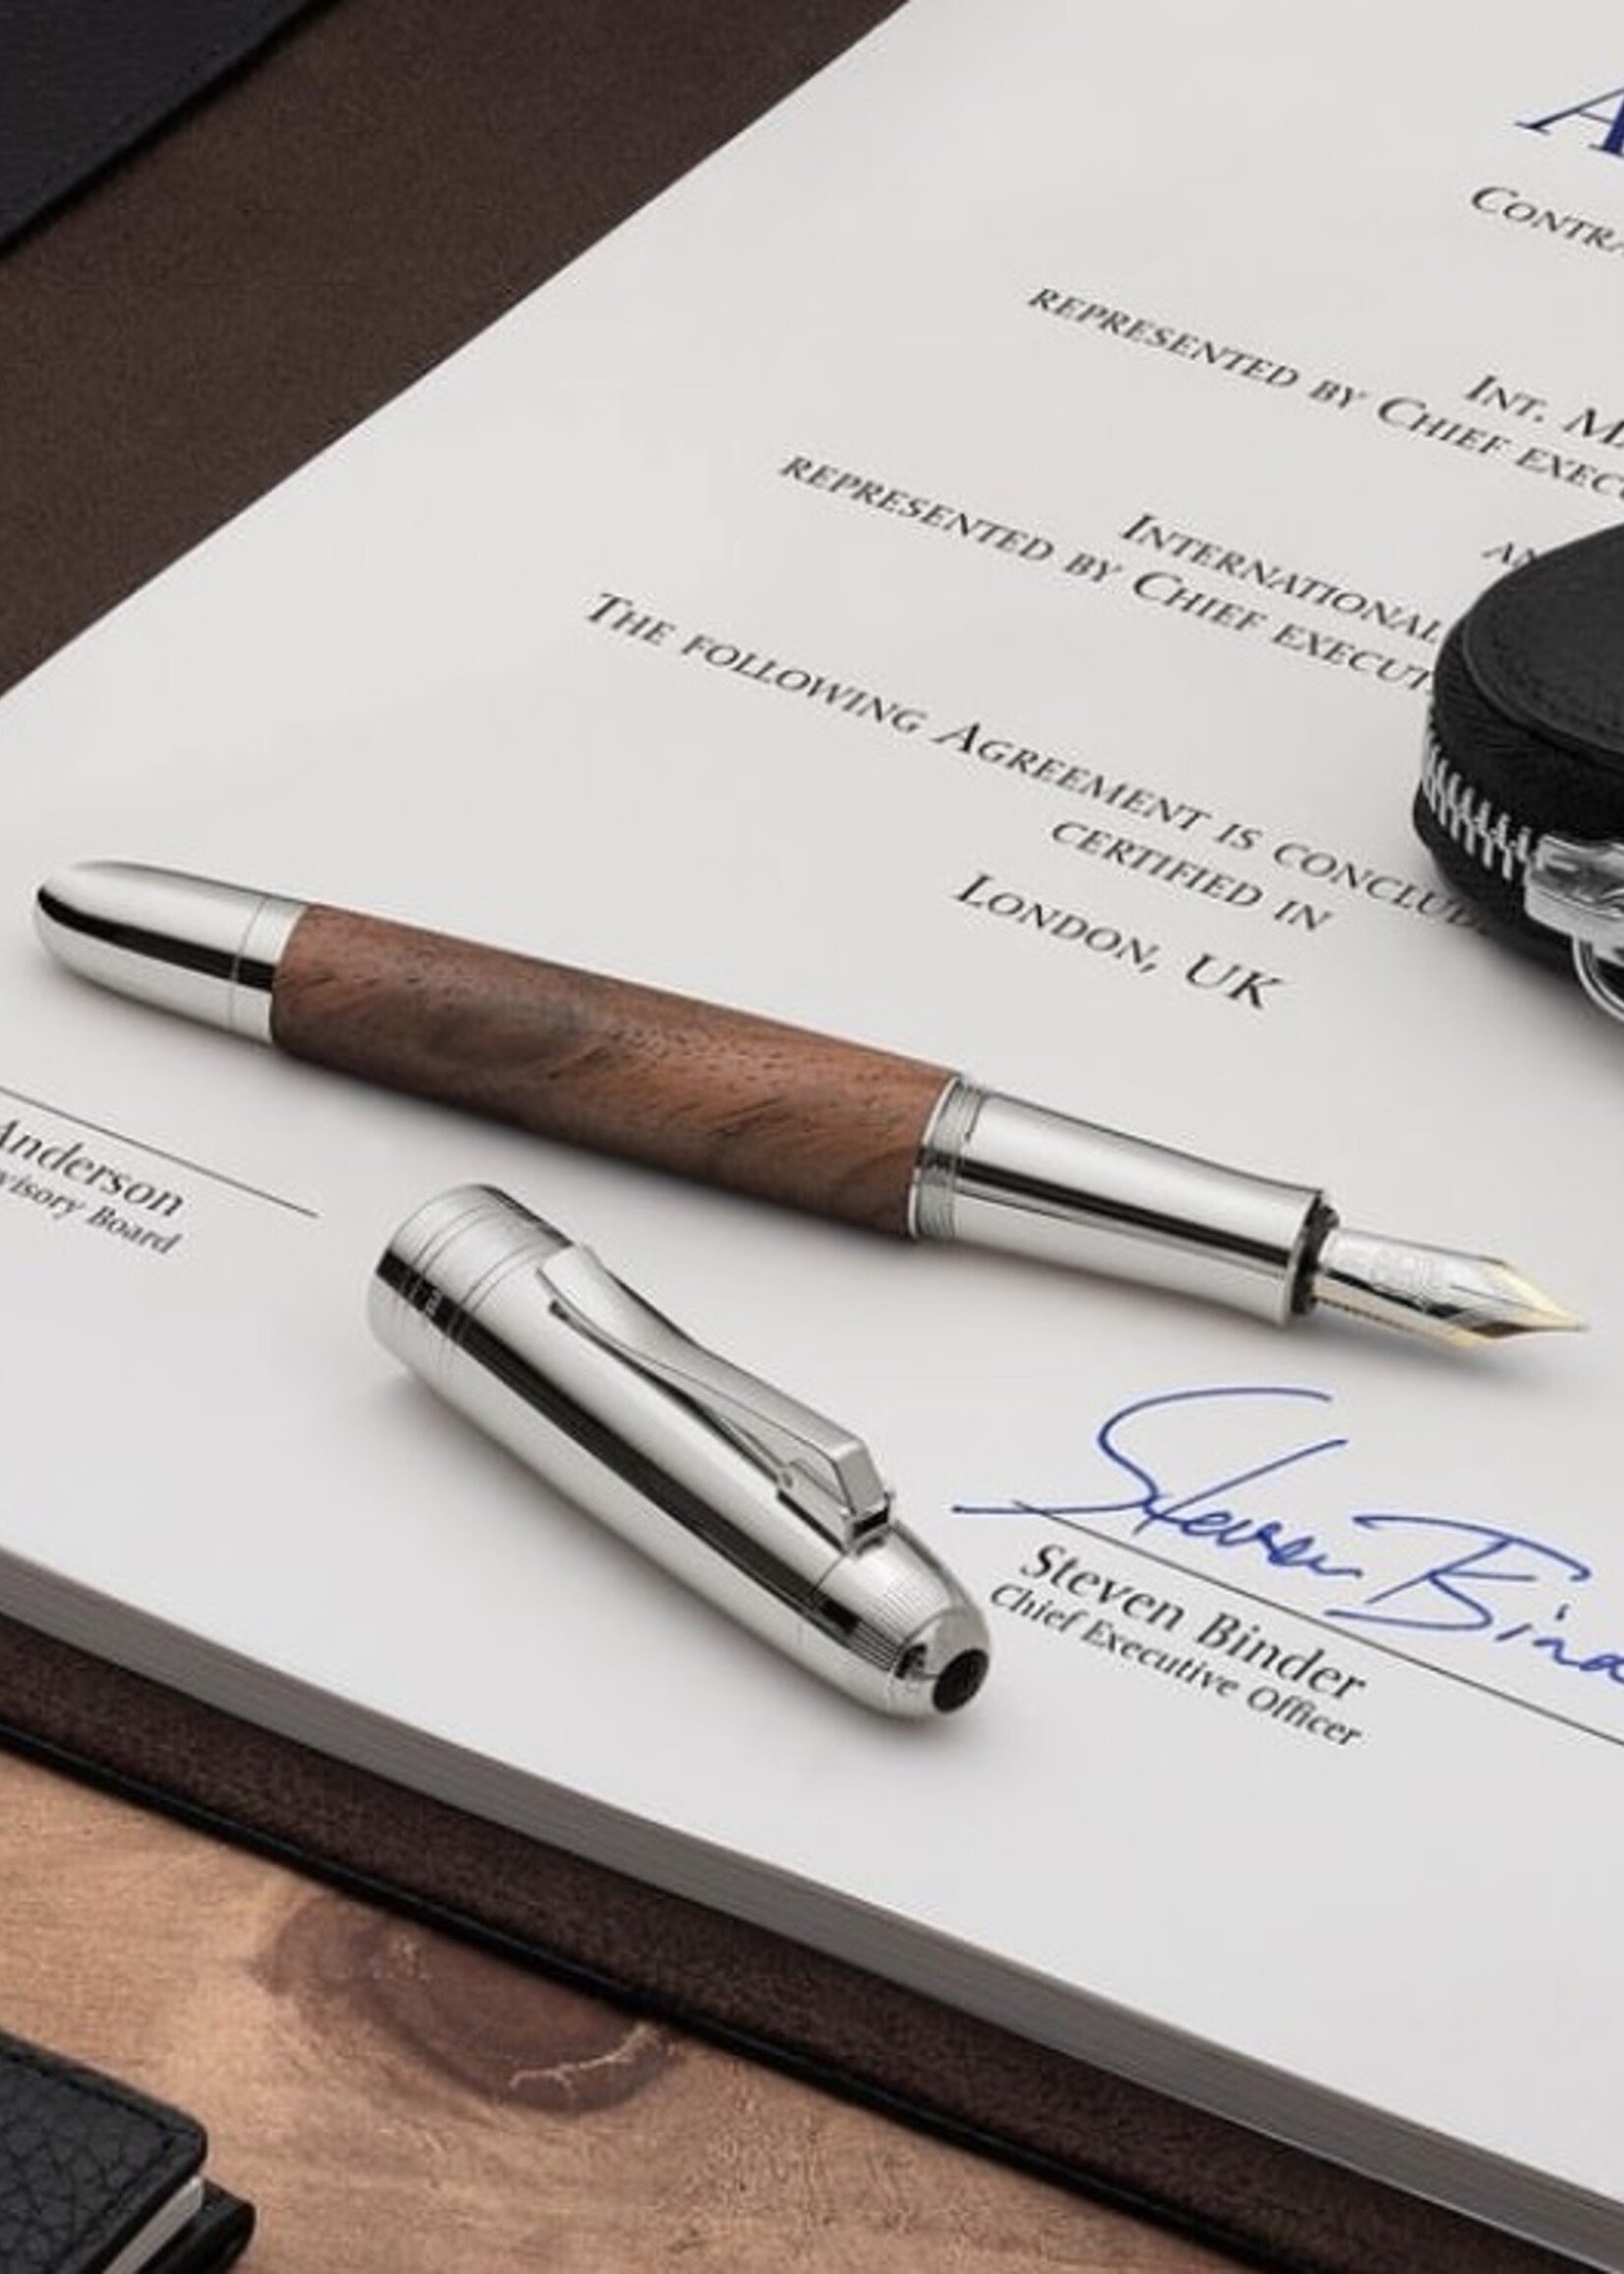 A
CONTRA
INT. MA
REPRESENTED BY CHIEF EXECU
AN
INTERNATIONAL
REPRESENTED BY CHIEF EXECUTI
THE FOLLOWING AGREEMENT IS CONCLUD
CERTIFIED IN
LONDON, UK
Anderson
visory Board
Steven Bind
Steven Binder
Chief Executive Officer